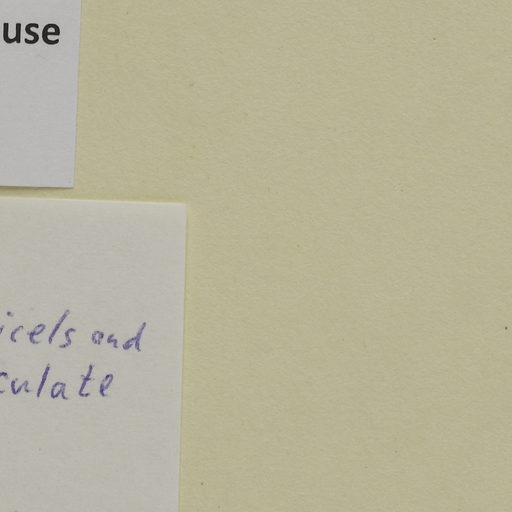 use
icels and
culate